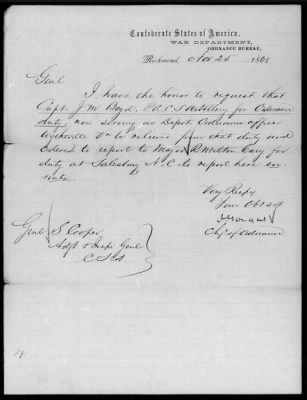 Confederate States of America,
WAR DEPARTMENT,
ORDNANCE BUREAU,
Richmond, Nov 25 1864
Genl
I have the honor to request that
Capt. J. W. Boyd, P.A.C.S. Artillery for Ordnance
duty, now serving as Depot Ordnance officer
Wytheville Va be relieved from that duty and
ordered to report to Major R. Milton Cary for
duty at Salisbury N.C. to report here en
route.
Very Respy
Your Obt Svt
J Gorgas
Chf of Ordnance
Genl S. Cooper
Adjt & Inspr Genl
C.S.A.